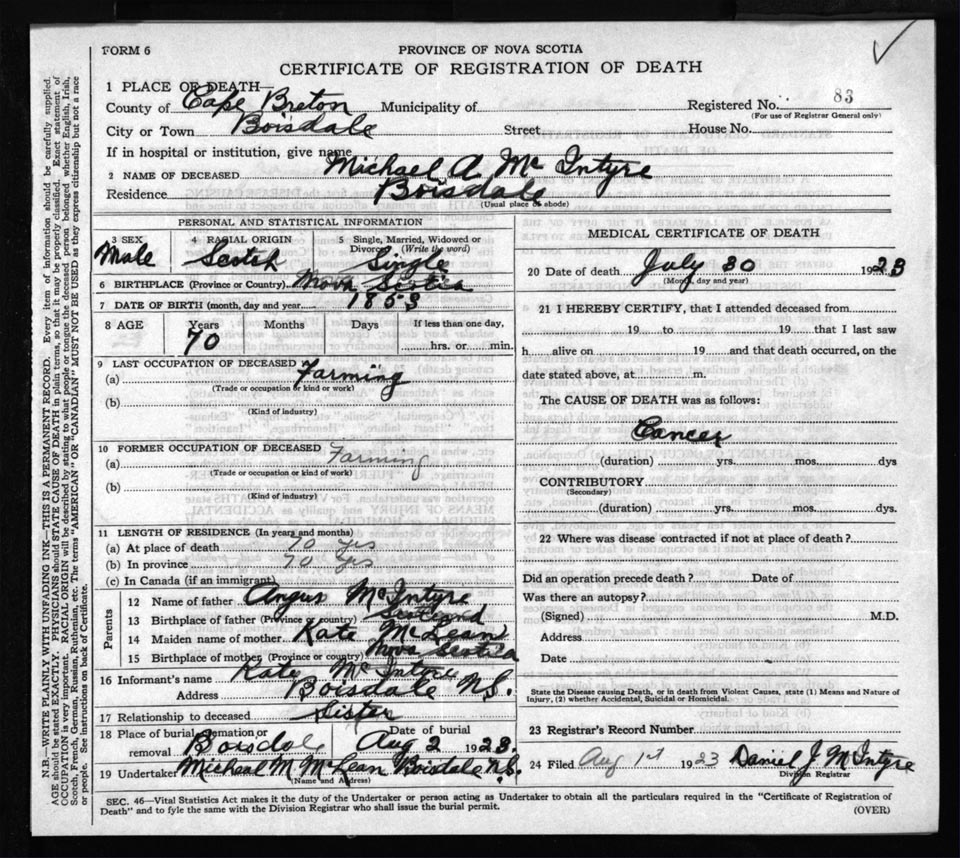 FORM 6
PROVINCE OF NOVA SCOTIA
CERTIFICATE OF REGISTRATION OF DEATH
1 PLACE OF DEATH
County of Cape Breton Municipality of Registered No. 83
(For use of Registrar General only)
City or Town Boisdale Street House No.
If in hospital or institution, give name
2 NAME OF DECEASED Michael A Mc Intyre
Residence Boisdale
(Usual place of abode)
PERSONAL AND STATISTICAL INFORMATION
3 SEX Male
4 RACIAL ORIGIN Scotch
5 Single, Married, Widowed or Divorced (Write the word) Single
6 BIRTHPLACE (Province or Country) Nova Scotia
7 DATE OF BIRTH (month, day and year) 1853
8 AGE Years 70 Months Days If less than one day, hrs. or min.
9 LAST OCCUPATION OF DECEASED
(a) Farming
(Trade or occupation or kind or work)
(b)
(Kind of industry)
10 FORMER OCCUPATION OF DECEASED
(a) Farming
(Trade or occupation or kind of work)
(b)
(Kind of industry)
11 LENGTH OF RESIDENCE (In years and months)
(a) At place of death 70 yrs
(b) In province 70 yrs
(c) In Canada (if an immigrant)
Parents
12 Name of father Angus McIntyre
13 Birthplace of father (Province or country) Scotland
14 Maiden name of mother Kate McLean
15 Birthplace of mother (Province or country) Nova Scotia
16 Informant's name Kate Mc Intyre
Address Boisdale N.S.
17 Relationship to deceased Sister
18 Place of burial, cremation or removal Boisdale Date of burial Aug 2 1923.
19 Undertaker Michael M McLean Boisdale N.S.
(Name and Address)
MEDICAL CERTIFICATE OF DEATH
20 Date of death July 30 1923
(Month, day and year)
21 I HEREBY CERTIFY, that I attended deceased from
19 to 19 that I last saw
h alive on 19 and that death occurred, on the
date stated above, at m.
The CAUSE OF DEATH was as follows:
Cancer
(duration) yrs. mos. dys
CONTRIBUTORY
(Secondary)
(duration) yrs. mos. dys.
22 Where was disease contracted if not at place of death?
Did an operation precede death? Date of
Was there an autopsy?
(Signed) M.D.
Address
Date
State the Disease causing Death, or in death from Violent Causes, state (1) Means and Nature of
Injury, (2) whether Accidental, Suicidal or Homicidal.
23 Registrar's Record Number
24 Filed Aug 1st 1923 Daniel J McIntyre
Division Registrar
SEC. 46—Vital Statistics Act makes it the duty of the Undertaker or person acting as Undertaker to obtain all the particulars required in the "Certificate of Registration of
Death" and to fyle the same with the Division Registrar who shall issue the burial permit.
(OVER)
N.B.—WRITE PLAINLY WITH UNFADING INK—THIS IS A PERMANENT RECORD. Every item of information should be carefully supplied.
AGE should be stated EXACTLY. PHYSICIANS should STATE CAUSE OF DEATH in plain terms, so that it may be properly classified. Exact statement of
OCCUPATION is very important. RACIAL ORIGIN will be described by stating to what people or tongue the deceased person belonged whether English, Irish,
Scotch, French, German, Russian, Ruthenian, etc. The terms "AMERICAN" OR "CANADIAN" MUST NOT BE USED as they express citizenship but not a race
or people. See instructions on back of Certificate.